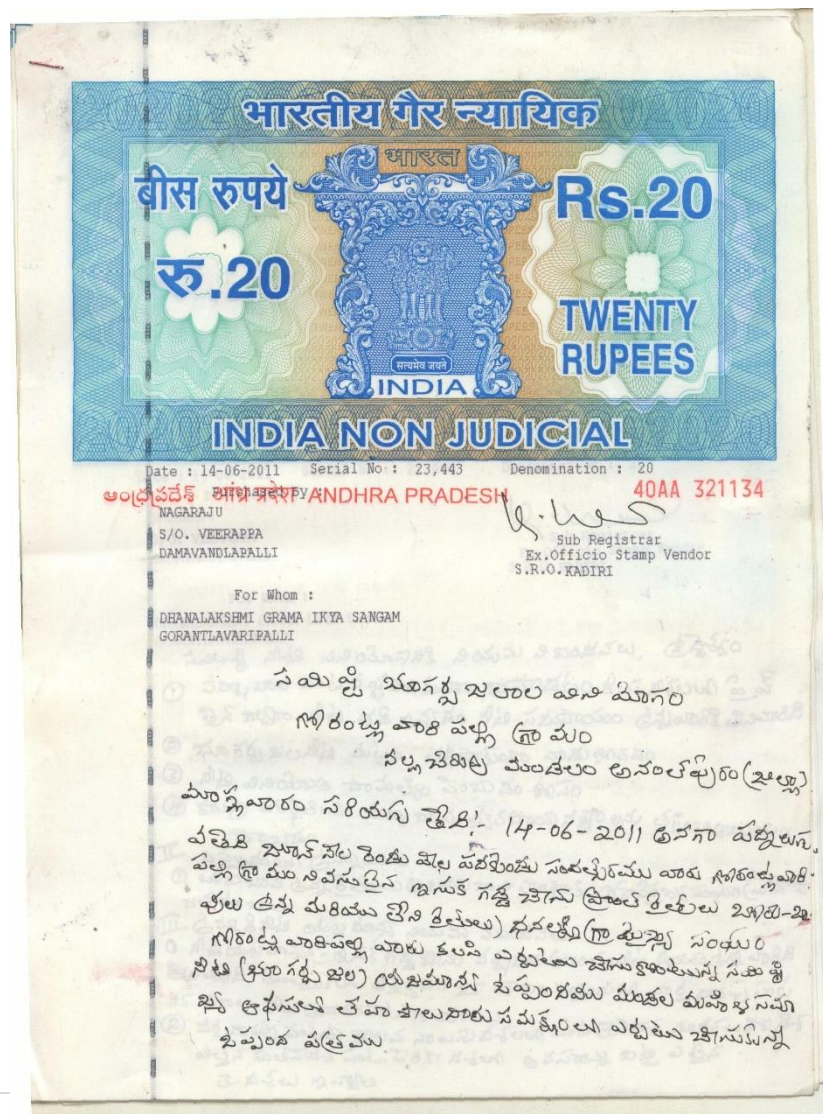 भारतीय गैर न्यायिक
भारत
बीस रुपये
Rs.20
रु.20
TWENTY
RUPEES
सत्यमेव जयते
INDIA
INDIA NON JUDICIAL
Date : 14-06-2011 Serial No : 23,443 Denomination : 20
ఆంధ్రప్రదేశ్ आंध्र प्रदेश ANDHRA PRADESH 40AA 321134
Purchased By :
NAGARAJU
S/O. VEERAPPA
DAMAVANDLAPALLI
Sub Registrar
Ex.Officio Stamp Vendor
S.R.O. KADIRI
For Whom :
DHANALAKSHMI GRAMA IKYA SANGAM
GORANTLAVARIPALLI
సమిష్టి భూగర్భ జలాల వినియోగం
గోరంట్ల వారి పల్లి గ్రామం
నల్లచెరువు మండలం అనంతపురం (జిల్లా)
మంగళవారం సరియగు తేది: 14-06-2011 అనగా పద్నాలుగు
వతేది జూన్ నెల రెండు వేల పదకొండు సంవత్సరము వారు గోరంట్లవారి
పల్లి గ్రామం ఇసుక
ఉన్న మరియు లేని రైతులు) ధనలక్ష్మి గ్రామైక్య సంఘం
గోరంట్లవారిపల్లి వారు కలసి ఏర్పాటు చేసుకొంటున్న సమిష్టి
నీటి (భూగర్భ జల) యజమాన్య ఒప్పందము మండల మహిళ సమా
ఖ్య ఆఫీసులో తహశీలుదారు సమక్షంలో ఏర్పాటు చేసుకున్న
ఒప్పంద పత్రము